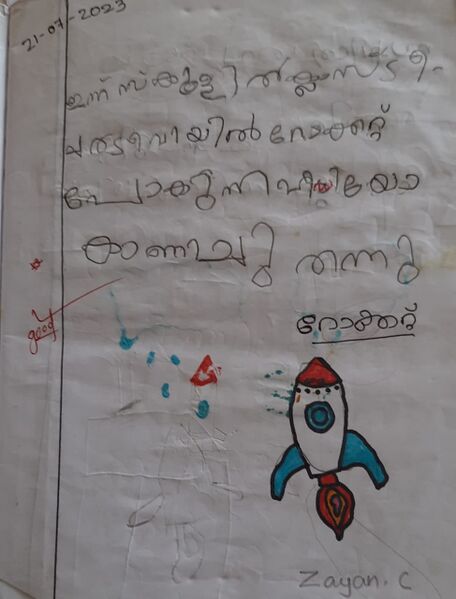 21-07-2023
ഇന്ന് സ്കൂളിൽ ക്ലാസ്
പരിപാടിയിൽ റോക്കറ്റ്
പോകുന്ന വീഡിയോ
കാണിച്ചു തന്നു
good
റോക്കറ്റ്
Zayan. C